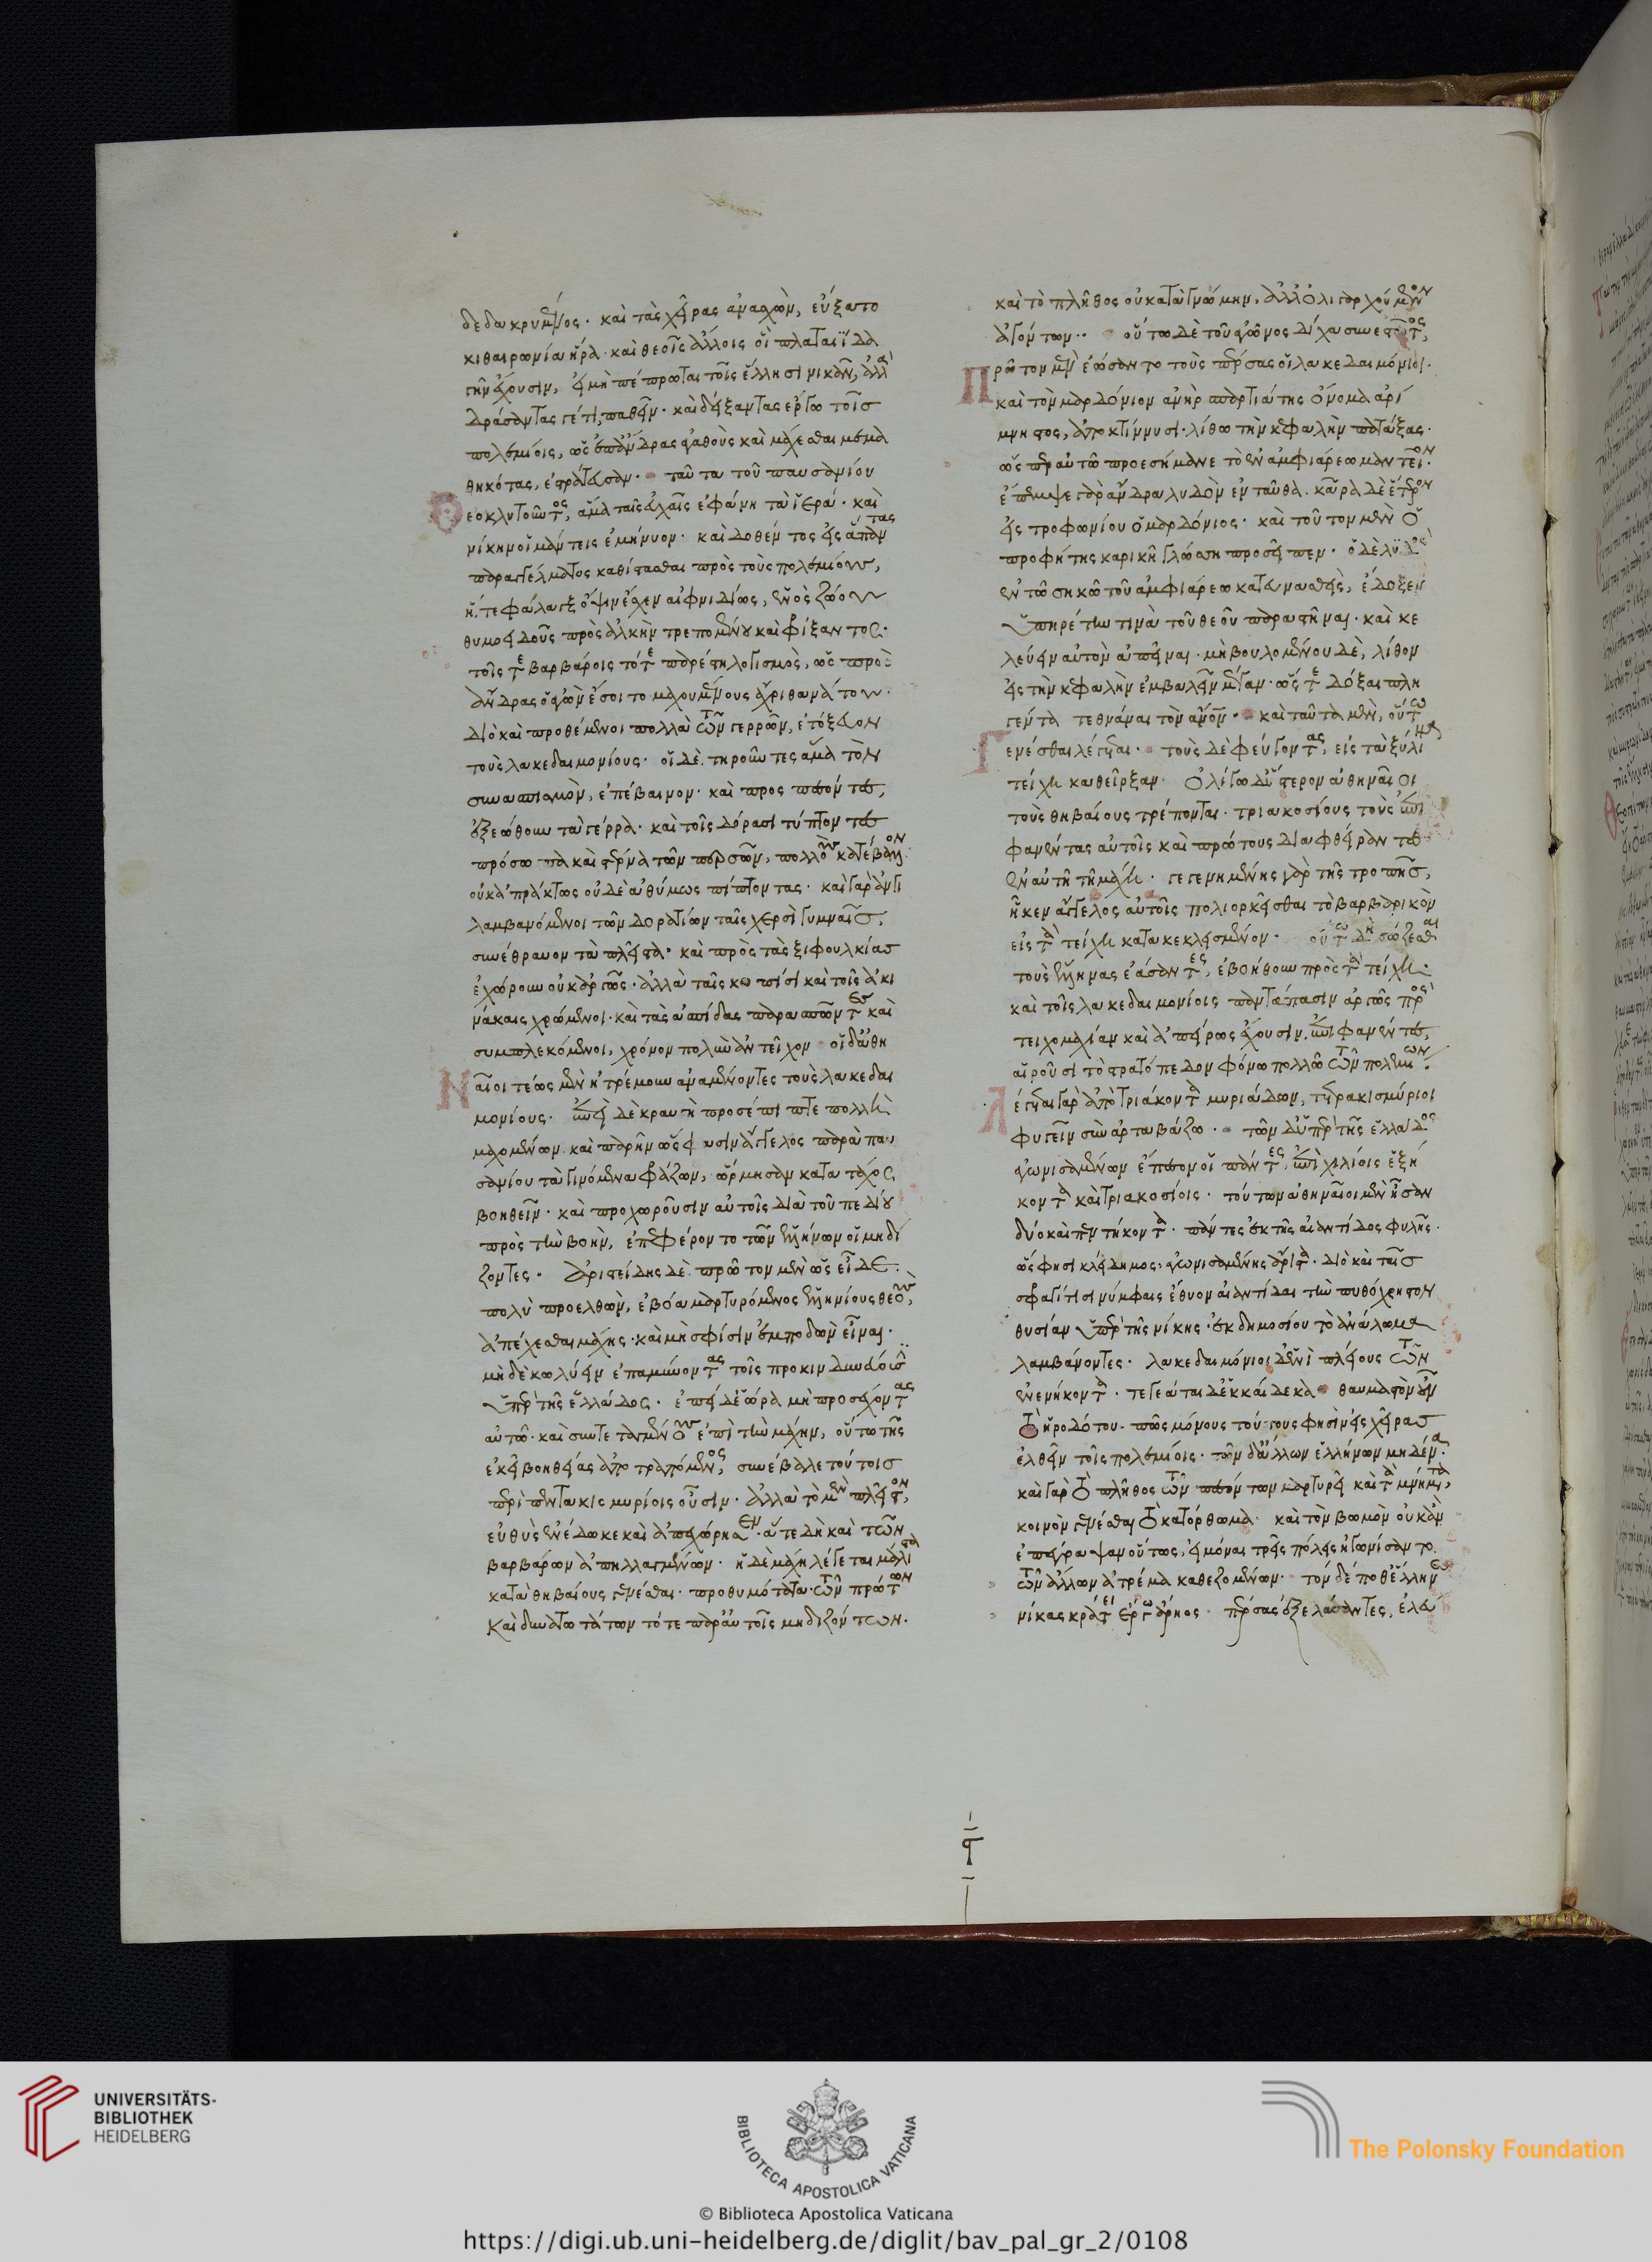 δεδακρυμένος· καὶ τὰς χεῖρας ἀνασχὼν, εὔξατο
κιθαιρωνία ἥρα· καὶ θεοῖς ἄλλοις οἳ πλαταιΐδα
γῆν ἔχουσιν, εἰ μὴ πέπρωται τοῖς ἕλλησι νικᾶν, ἀλλὰ
δράσαντας γέ τι παθεῖν· καὶ δείξαντας ἔργω τοῖσ
πολεμίοις, ὡς ἐπ' ἄνδρας ἀγαθοὺς καὶ μάχεσθαι μεμα
θηκότας, ἐστράτευσαν· ταῦτα τοῦ παυσανίου
Θεοκλυτοῦντος, ἅμα ταῖς εὐχαῖς ἐφάνη τὰ ἱερά· καὶ
νίκην οἱ μάντεις ἐμήνυον· καὶ δοθέντος εἰς ἅπαντας
παραγγέλματος καθίστασθαι πρὸς τοὺς πολεμίους,
ἥ, τε φάλαγξ ὄψιν ἔσχεν αἰφνιδίως, ἑνὸς ζώου
θυμοειδοῦς πρὸς ἀλκὴν τρεπομένου καὶ φρίξαντος·
τοῖς τὲ βαρβάροις τότε παρέστη λογισμὸς, ὡς πρὸς
ἄνδρας ὁ ἀγὼν ἔσοιτο μαχουμένους ἄχρι θανάτου·
διὸ καὶ προθέμενοι πολλὰ τῶν γερρῶν, ἐτόξευον
τοὺς λακεδαιμονίους· οἱ δὲ τηροῦντες ἅμα τὸν
συνασπισμὸν, ἐπέβαινον· καὶ προσπεσόντες,
ἐξεώθουν τὰ γέρρα· καὶ τοῖς δόρασι τύπτοντες
πρόσωπα καὶ στέρνα τῶν περσῶν, πολλοὺς κατέβαλλον·
οὐκ ἀπράκτως οὐδὲ ἀθύμως πίπτοντας· καὶ γὰρ ἀντι
λαμβανόμενοι τῶν δορατίων ταῖς χερσὶ γυμναῖσ,
συνέθραυον τὰ πλεῖστα· καὶ πρὸς τὰς ξιφουλκίασ
ἐχώρουν οὐκ ἀργῶς· ἀλλὰ ταῖς κοπίσι καὶ τοῖς ἀκι
νάκαις χρώμενοι· καὶ τὰς ἀσπίδας παρασπῶντες καὶ
συμπλεκόμενοι, χρόνον πολὺν ἀντεῖχον· οἱ δ' ἀθη
Ναῖοι τέως μὲν ἠτρέμουν ἀναμένοντες τοὺς λακεδαι
μονίους· ἐπεὶ δὲ κραυγὴ προσέπιπτε πολλὴ
μαχομένων καὶ παρῆν ὥς φησιν ἄγγελος παρὰ παυ
σανίου τὰ γινόμενα φράζων, ὥρμησαν κατὰ τάχος
βοηθεῖν· καὶ προχωροῦσιν αὐτοῖς διὰ τοῦ πεδίου
πρὸς τὴν βοὴν, ἐπεφέροντο τῶν ἑλλήνων οἱ μηδί
ζοντες· Ἀριστείδης δὲ πρῶτον μὲν ὡς εἶδε
πολὺ προελθὼν, ἐβόα μαρτυρόμενος ἑλληνίους θεοὺς,
ἀπέχεσθαι μάχης· καὶ μὴ σφίσιν ἐμποδὼν εἶναι·
μὴ δὲ κωλύειν ἐπαμύνοντας τοῖς προκινδυνεύουσι
ὑπὲρ τῆς ἑλλάδος· ἐπεὶ δὲ ἑώρα μὴ προσέχοντας
αὐτῶ· καὶ συντεταγμένους ἐπὶ τὴν μάχην, οὕτω τῆς
ἐκεῖ βοηθείας ἀποτραπόμενος, συνέβαλε τούτοισ
περὶ πεντακις μυρίοις οὖσιν· ἀλλὰ τὸ μὲν πλεῖστον,
εὐθὺς ἐνέδωκε καὶ ἀπεχώρησεν· ἅτε δὴ καὶ τῶν
βαρβάρων ἀπηλλαγμένων· ἡ δὲ μάχη λέγεται μάλιστα
κατὰ θηβαίους γενέσθαι· προθυμότατα τῶν πρώτων
Καὶ δυνατωτάτων τότε παρ' αὐτοῖς μηδιζόντων·
καὶ τὸ πλῆθος οὐ κατὰ γνώμην, ἀλλ' ὀλιγαρχούμενον
ἀγόντων· οὕτω δὲ τοῦ ἀγῶνος δίχα συνεστῶτος,
Πρῶτον μὲν ἐώσαντο τοὺς πέρσας οἱ λακεδαιμόνιοι·
καὶ τὸν μαρδόνιον ἀνὴρ σπαρτιάτης ὄνομα ἀρί
μνηστος, ἀποκτίννυσι· λίθω τὴν κεφαλὴν πατάξας·
ὥσπερ αὐτῶ προεσήμανε τὸ ἐν ἀμφιάρεω μαντεῖον·
ἔπεμψε γὰρ ἄνδρα λυδὸν ἐνταῦθα· κᾶρα δὲ ἕτερον
εἰς τροφωνίου ὁ μαρδόνιος· καὶ τοῦτον μὲν ὁ
προφήτης καρικῆ γλώσση προσεῖπεν· ὁ δὲ λυδὸς
ἐν τῶ σηκῶ τοῦ ἀμφιάρεω κατευνασθεὶς, ἔδοξεν
ὑπηρέτην τινὰ τοῦ θεοῦ παραστῆναι· καὶ κε
λεύειν αὐτὸν ἀπιέναι· μὴ βουλομένου δὲ, λίθον
εἰς τὴν κεφαλὴν ἐμβαλεῖν μέγαν· ὥστε δόξαι πλη
γέντα τεθνάναι τὸν ἄνθρωπον· καὶ ταῦτα μὲν, οὕτω
Γενέσθαι λέγεται· τοὺς δὲ φεύγοντας, εἰς τὰ ξύλινα
τείχη καθεῖρξαν· Ὀλίγω δ' ὕστερον ἀθηναῖοι
τοὺς θηβαίους τρέπονται· τριακοσίους τοὺς ἐπι
φανεστάτους αὐτοῖς καὶ πρώτους διαφθείραντες
ἐν αὐτῆ τῆ μάχη· γεγενημένης γὰρ τῆς τροπῆσ,
ἧκεν ἄγγελος αὐτοῖς πολιορκεῖσθαι τὸ βαρβαρικὸν
εἰς τὰ τείχη κατακεκλεισμένον· οὕτω δὴ σώζεσθαι
τοὺς ἕλληνας ἐάσαντες, ἐβοήθουν πρὸς τὰ τείχη·
καὶ τοῖς λακεδαιμονίοις παντάπασιν ἀργῶς πρὸς
τειχομαχίαν καὶ ἀπείρως ἔχουσιν, ἐπιφανέντες,
αἱροῦσι τὸ στρατόπεδον φόνω πολλῶ τῶν πολεμίων·
Λέγεται γὰρ ἀπὸ τριάκοντα μυριάδων, τετρακισμύριοι
φυγεῖν σὺν ἀρταβάζω· τῶν δ' ὑπὲρ τῆς ἑλλάδος
ἀγωνισαμένων ἔπεσον οἱ πάντες, ἐπὶ χιλίοις ἑξή
κοντα καὶ τριακοσίοις· τούτων ἀθηναῖοι μὲν ἦσαν
δύο καὶ πεντήκοντα· πάντες ἐκ τῆς αἰαντίδος φυλῆς·
ὥς φησι κλείδημος· ἀγωνισαμένης ἄριστα· διὸ καὶ ταῖσ
σφαγίτισι νύμφαις ἔθυον αἰαντίδαι τὴν πυθόχρηστον
θυσίαν ὑπὲρ τῆς νίκης· ἐκ δημοσίου τὸ ἀνάλωμα
λαμβάνοντες· λακεδαιμόνιοι δ' ἑνὶ πλείους τῶν
ἐνενήκοντα· τεγεάται δ' ἑκκαίδεκα· θαυμαστὸν οὖν
τὸ ἡροδότου· πῶς μόνους τούτους φησὶν εἰς χεῖρασ
ἐλθεῖν τοῖς πολεμίοις· τῶν δ' ἄλλων ἑλλήνων μηδένα·
καὶ γὰρ τὸ πλῆθος τῶν πεσόντων μαρτυρεῖ καὶ τὰ μνήματα,
κοινὸν γενέσθαι τὸ κατόρθωμα· καὶ τὸν βωμὸν οὐκ ἂν
ἐπέγραψαν οὕτως, εἰ μόναι τρεῖς πόλεις ἠγωνίσαντο
τῶν ἄλλων ἀτρέμα καθεζομένων· τόν δέ ποθ' ἕλληνες
νίκας κράτει ἔργω ἄρηος· πέρσας ἐξελάσαντες, ἐλευ
UNIVERSITÄTS-
BIBLIOTHEK
HEIDELBERG
BIBLIOTECA APOSTOLICA VATICANA
The Polonsky Foundation
© Biblioteca Apostolica Vaticana
https://digi.ub.uni-heidelberg.de/diglit/bav_pal_gr_2/0108